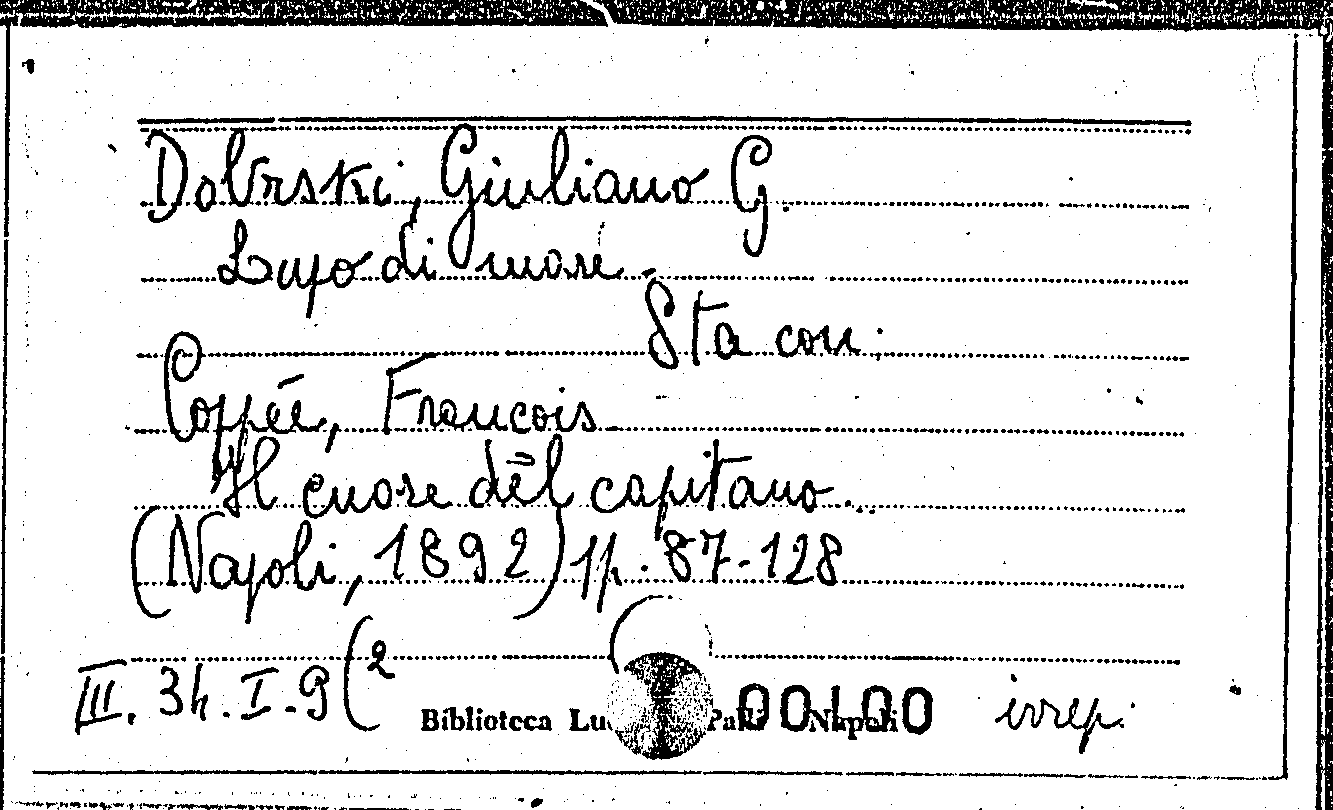 Dobrski, Giuliano G.
Lupo di mare.
Sta con:
Coppée, Francois
Il cuore del capitano.
(Napoli, 1892) pp. 87-128
III. 34. I. 9 (2
Biblioteca Napoli
00100
irrep.